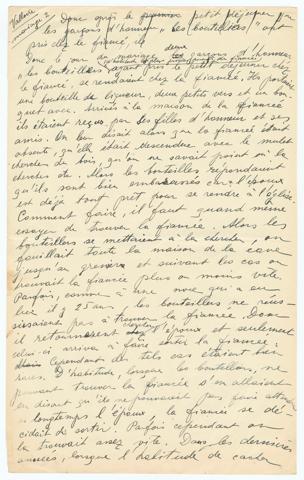 Vallorcine
mariage 2
Donc après le premier petit déjeuner pris
les garçons d'honneur "les bouteillers" ont
pris chez le fiancé, il
Donc le jour du mariage deux garçons d'honneur
"les bouteillers" ayant pris le déjeuner chez
le fiancé, se rendaient chez la fiancée. Ils portaient
une bouteille de liqueur, deux petits verres et un bou-
quet avec. Arrivés à la maison de la fiancée
ils étaient reçus par les filles d'honneur et ses
amis. On leur disait alors que la fiancée était
absente, qu'elle était descendue avec le mulet
chercher du bois, qu'on ne savait point où la
chercher etc. Mais les bouteillers répondaient
qu'ils sont bien embarrassés car l'époux
est déjà tout prêt pour se rendre à l'église.
Comment faire, il faut quand même
essayer de trouver la fiancée. Alors les
bouteillers se mettaient à la chercher, on
fouillait toute la maison de la cave
jusqu'au grenier et suivant les cas on
trouvait la fiancée plus ou moins vite.
Parfois, comme à une noce qui a eu
lieu il y 25 ans, les bouteillers ne réus-
sissaient pas à trouver la fiancée. Donc
ils retournèrent chez l'époux et seulement
celui-ci arriva à faire sortir la fiancée.
Cependant de tels cas étaient bien
rares. D'habitude, lorsque les bouteillers, ne
pouvant trouver la fiancée s'en allaient
en disant qu'ils ne pouvaient pas faire atten-
dre longtemps l'époux, la fiancée se dé-
cidait de sortir. Parfois cependant on
la trouvait assez vite. Dans les dernières
années, lorsque l'habitude de cacher